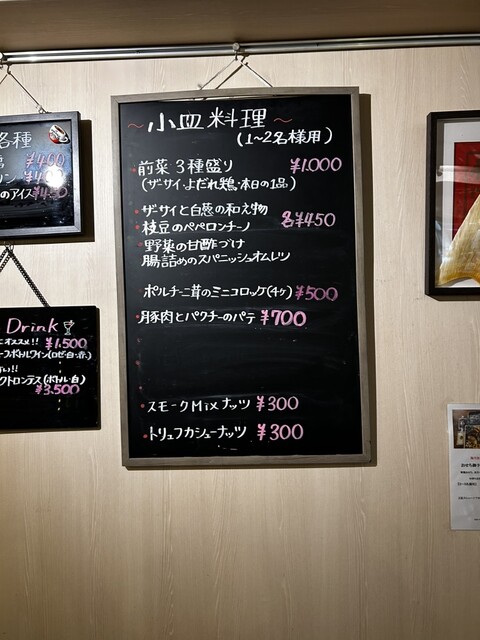 ~小皿料理~
(1~2名様用)
・前菜3種盛り ¥1.000
(ザーサイ・よだれ鶏・本日の1品)
・ザーサイと白葱の和え物
・枝豆のペペロンチーノ 各¥450
・野菜の甘酢づけ
腸詰めのスパニッシュオムレツ
ポルチーニ茸のミニコロッケ(4ヶ) ¥500
・豚肉とパクチーのパテ ¥700
・スモークMixナッツ ¥300
・トリュフカシューナッツ ¥300
各種
¥400
のアイス
Drink
オススメ!! ¥1.500
ボトルワイン(ロゼ・白・赤)
クトロンテス(ボトル・白)
¥3.500